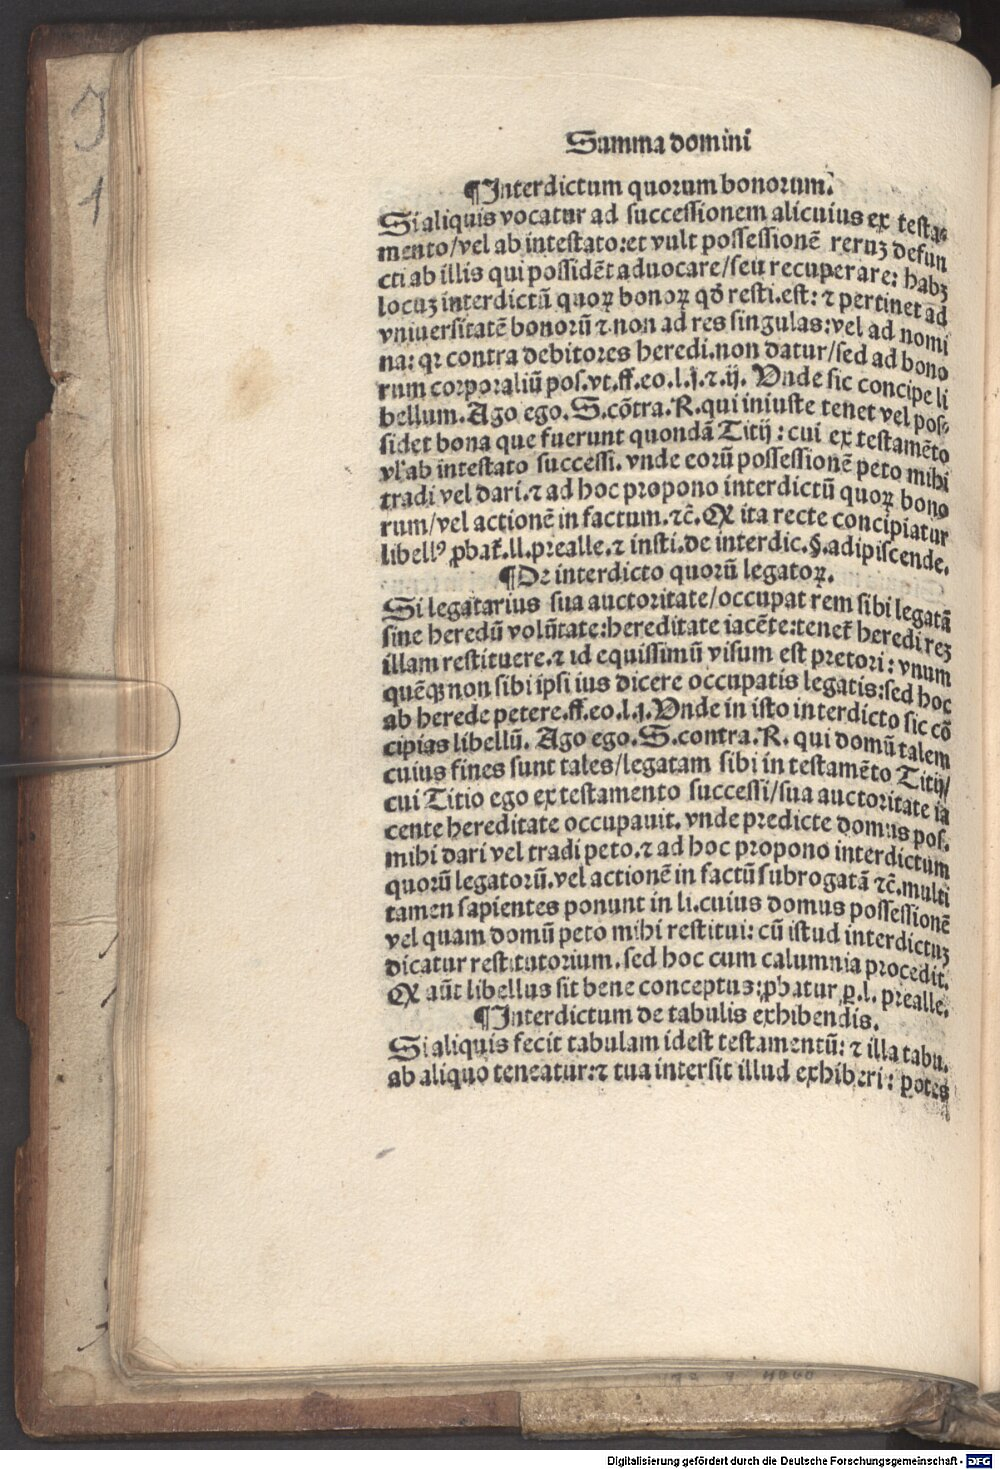 J
1
Summa domini
¶Interdictum quorum bonorum.
Si aliquis vocatur ad successionem alicuius ex testa⸗
mento/vel ab intestato:et vult possessionē reruꝫ defun
cti ab illis qui possidēt aduocare/seu recuperare: habꝫ
locuꝫ interdictū quoꝝ bonoꝝ qđ resti.est: ⁊ pertinet ad
vniuersitatē bonorū ⁊ non ad res singulas:vel ad nomi
na: qꝛ contra debitores heredi.non datur/sed ad bono
rum corporaliū pos.vt.ff.eo.l.j.⁊.ij. Vnde sic concipe li
bellum. Ago ego. S.cōtra.R.qui iniuste tenet vel pos⸗
sidet bona que fuerunt quondā Titij : cui ex testamēto
vl' ab intestato successi. vnde eorū possessionē peto mihi
tradi vel dari.⁊ ad hoc propono interdictū quoꝝ bono
rum/vel actionē in factum.⁊c̄. Et ita recte concipiatur
libellꝰ ꝓbat̄.ll.prealle.⁊ insti.de interdic.§.adipiscende.
¶De interdicto quorū legatoꝝ.
Si legatarius sua auctoritate/occupat rem sibi legatā
sine heredū volūtate:hereditate iacēte:tenet̄ heredi reꝫ
illam restituere.⁊ id equissimū visum est pretori: vnum
quēqꝫ non sibi ipsi ius dicere occupatis legatis:sed hoc
ab herede petere.ff.eo.l.j.Vnde in isto interdicto sic cō
cipias libellū. Ago ego. S.contra.R. qui domū talem
cuius fines sunt tales/legatam sibi in testamēto Titij/
cui Titio ego ex testamento successi/sua auctoritate ia
cente hereditate occupauit. vnde predicte domus pos.
mihi dari vel tradi peto.⁊ ad hoc propono interdictum
quorū legatorū.vel actionē in factū subrogatā ⁊c̄.multi
tamen sapientes ponunt in li.cuius domus possessionē
vel quam domū peto mihi restitui: cū istud interdictuꝫ
dicatur restitutorium. sed hoc cum calumnia procedit.
Et aūt libellus sit bene conceptus:ꝓbatur ꝑ.l. prealle.
¶Interdictum de tabulis exhibendis.
Si aliquis fecit tabulam idest testamentū: ⁊ illa tabu.
ab aliquo teneatur:⁊ tua intersit illud exhiberi: potes
Digitalisierung gefördert durch die Deutsche Forschungsgemeinschaft - DFG